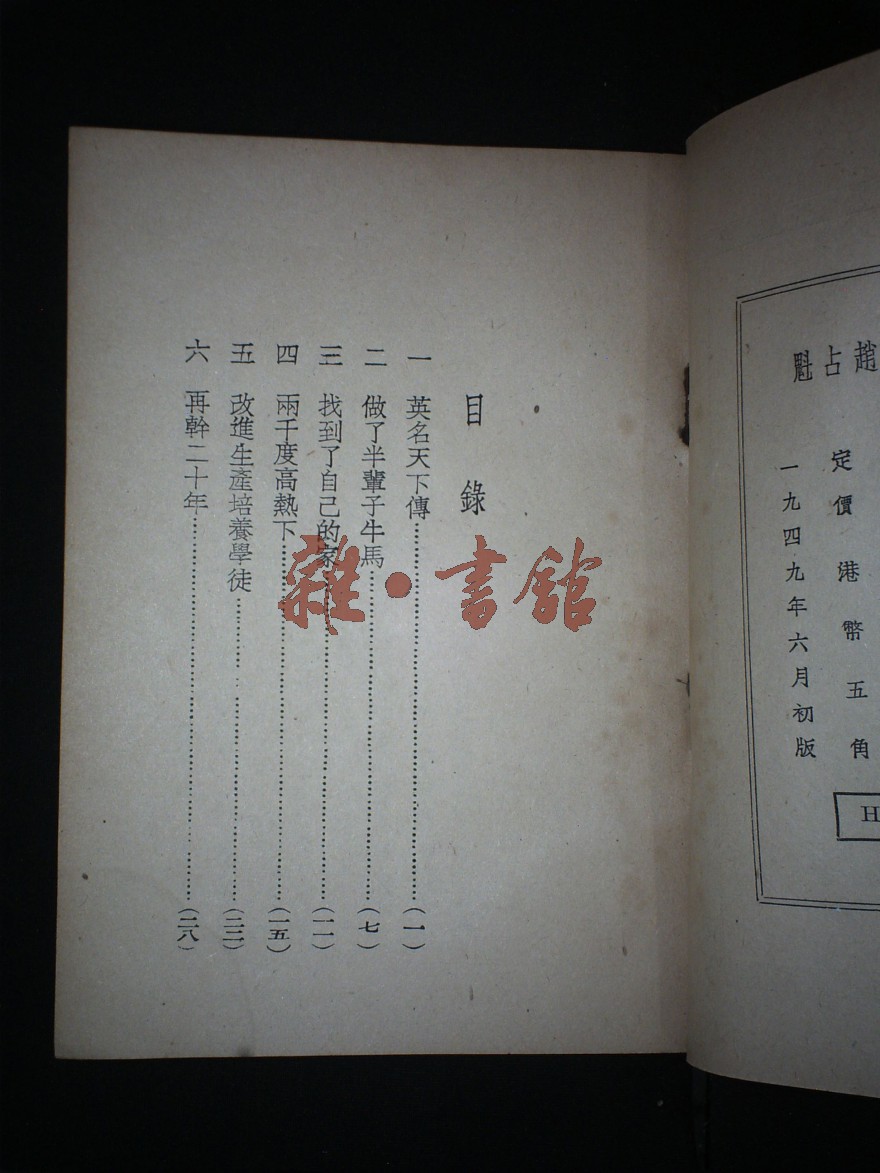 趙占魁
定價港幣五角
一九四九年六月初版
H
目錄
一 英名天下傳……(一)
二 做了半輩子牛馬……(七)
三 找到了自己的家……(一一)
四 兩千度高熱下……(一五)
五 改進生產培養學徒……(二二)
六 再幹二十年……(二八)
雜·書館